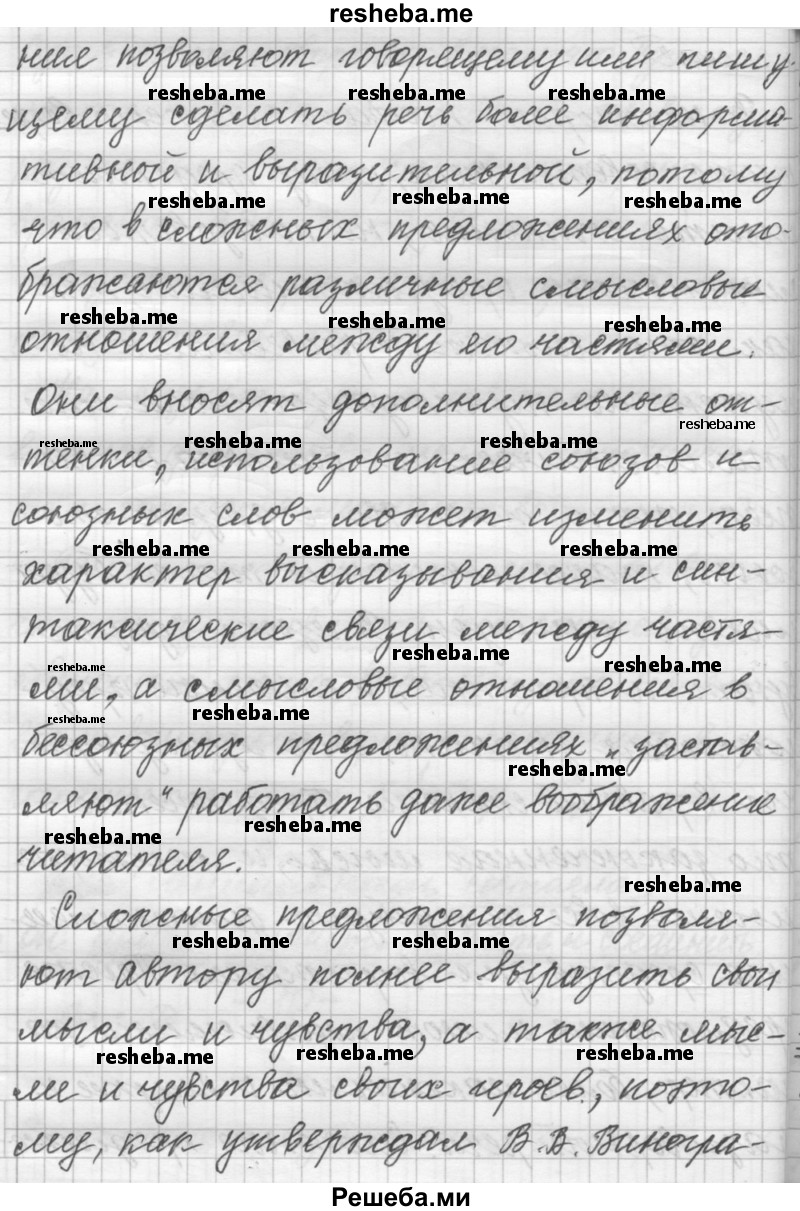 resheba.me
ния позволяют говорящему или пишу-
resheba.me resheba.me resheba.me
щему сделать речь более информа-
тивной и выразительной, потому
resheba.me resheba.me resheba.me
что в сложных предложениях ото-
бражаются различные смысловые
resheba.me resheba.me resheba.me
отношения между его частями.
Они вносят дополнительные от-
resheba.me resheba.me resheba.me resheba.me
тенки, использование союзов и
союзных слов может изменить
resheba.me resheba.me resheba.me
характер высказывания и син-
таксические связи между частя-
resheba.me resheba.me resheba.me
ми, а смысловые отношения в
resheba.me resheba.me
бессоюзных предложениях „застав-
resheba.me
ляют“ работать даже воображение
resheba.me resheba.me
читателя.
resheba.me
Сложные предложения позволя-
resheba.me resheba.me
ют автору полнее выразить свои
мысли и чувства, а также мыс-
resheba.me resheba.me resheba.me
ли и чувства своих героев, поэто-
му, как утверждал В.В. Виногра-
Решеба.ми